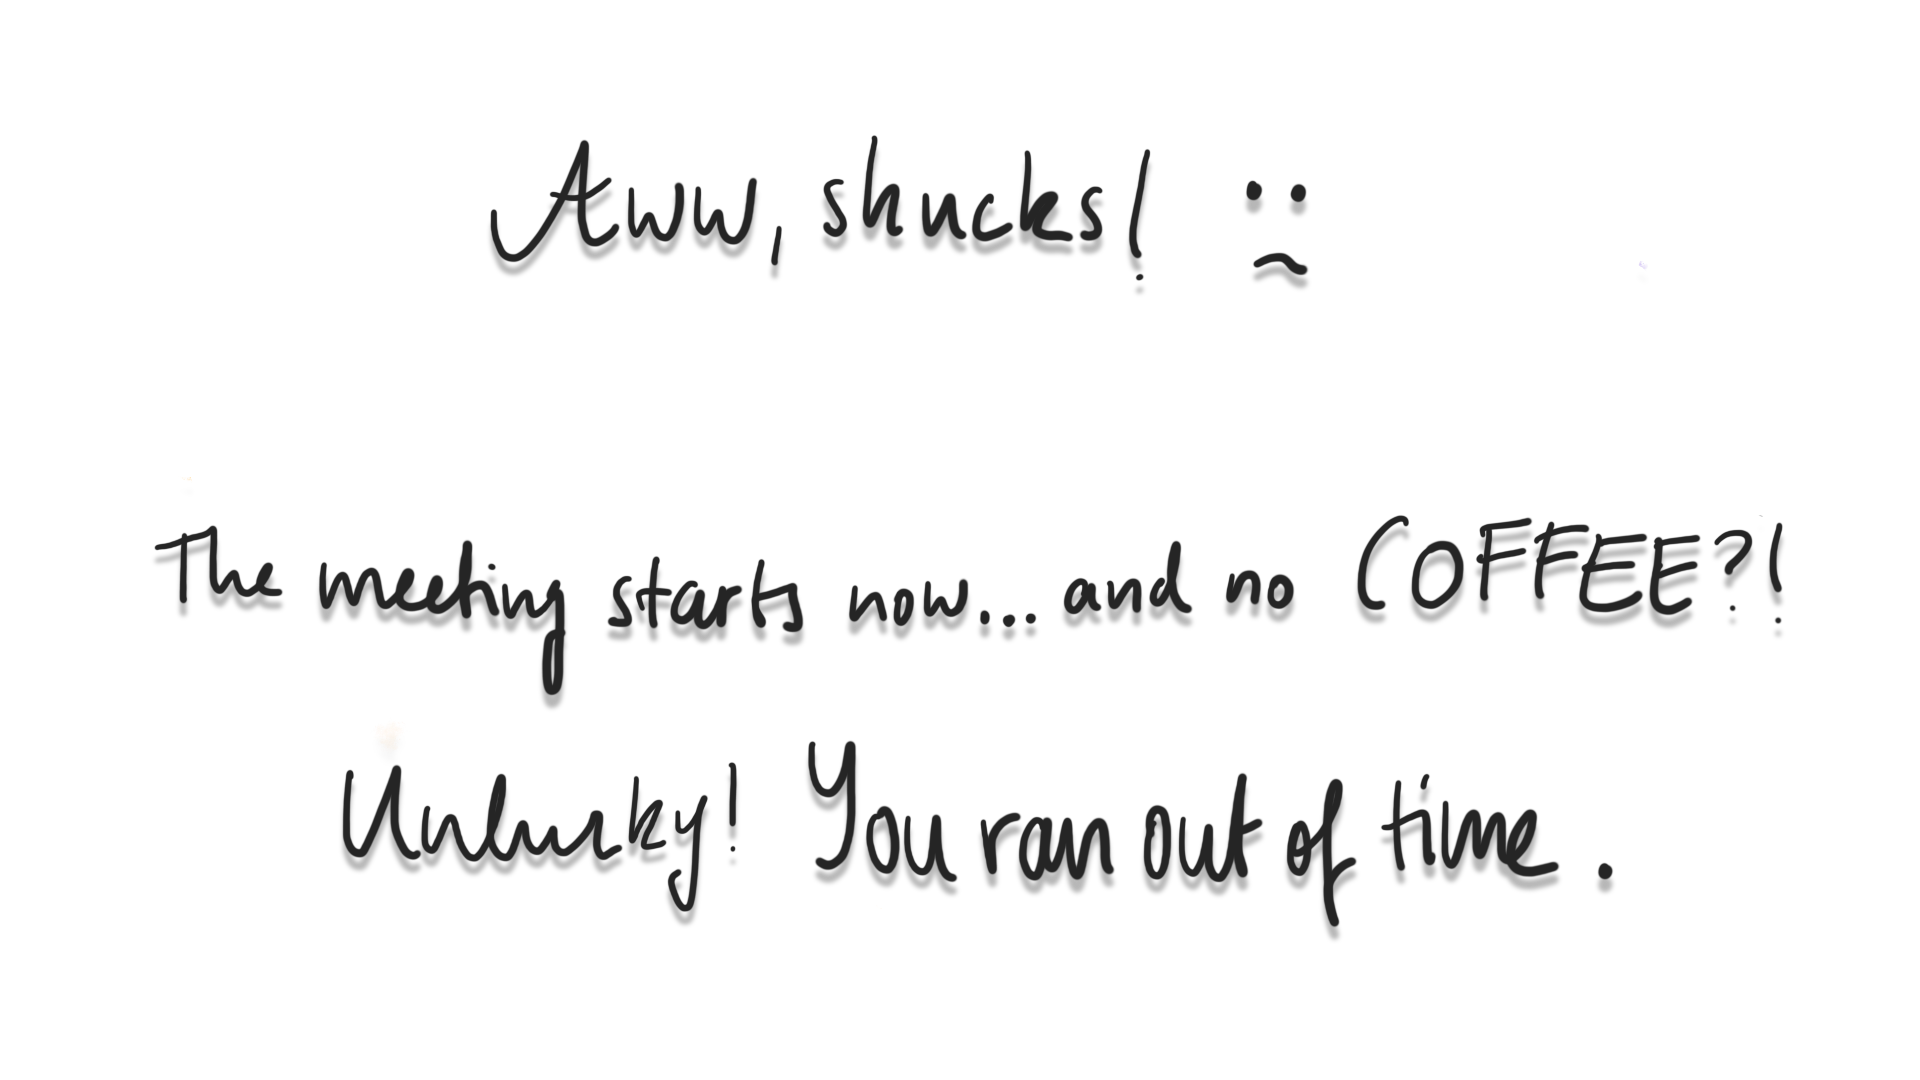 Aww, shucks! :(
The meeting starts now... and no COFFEE?!
Unlucky! You ran out of time.